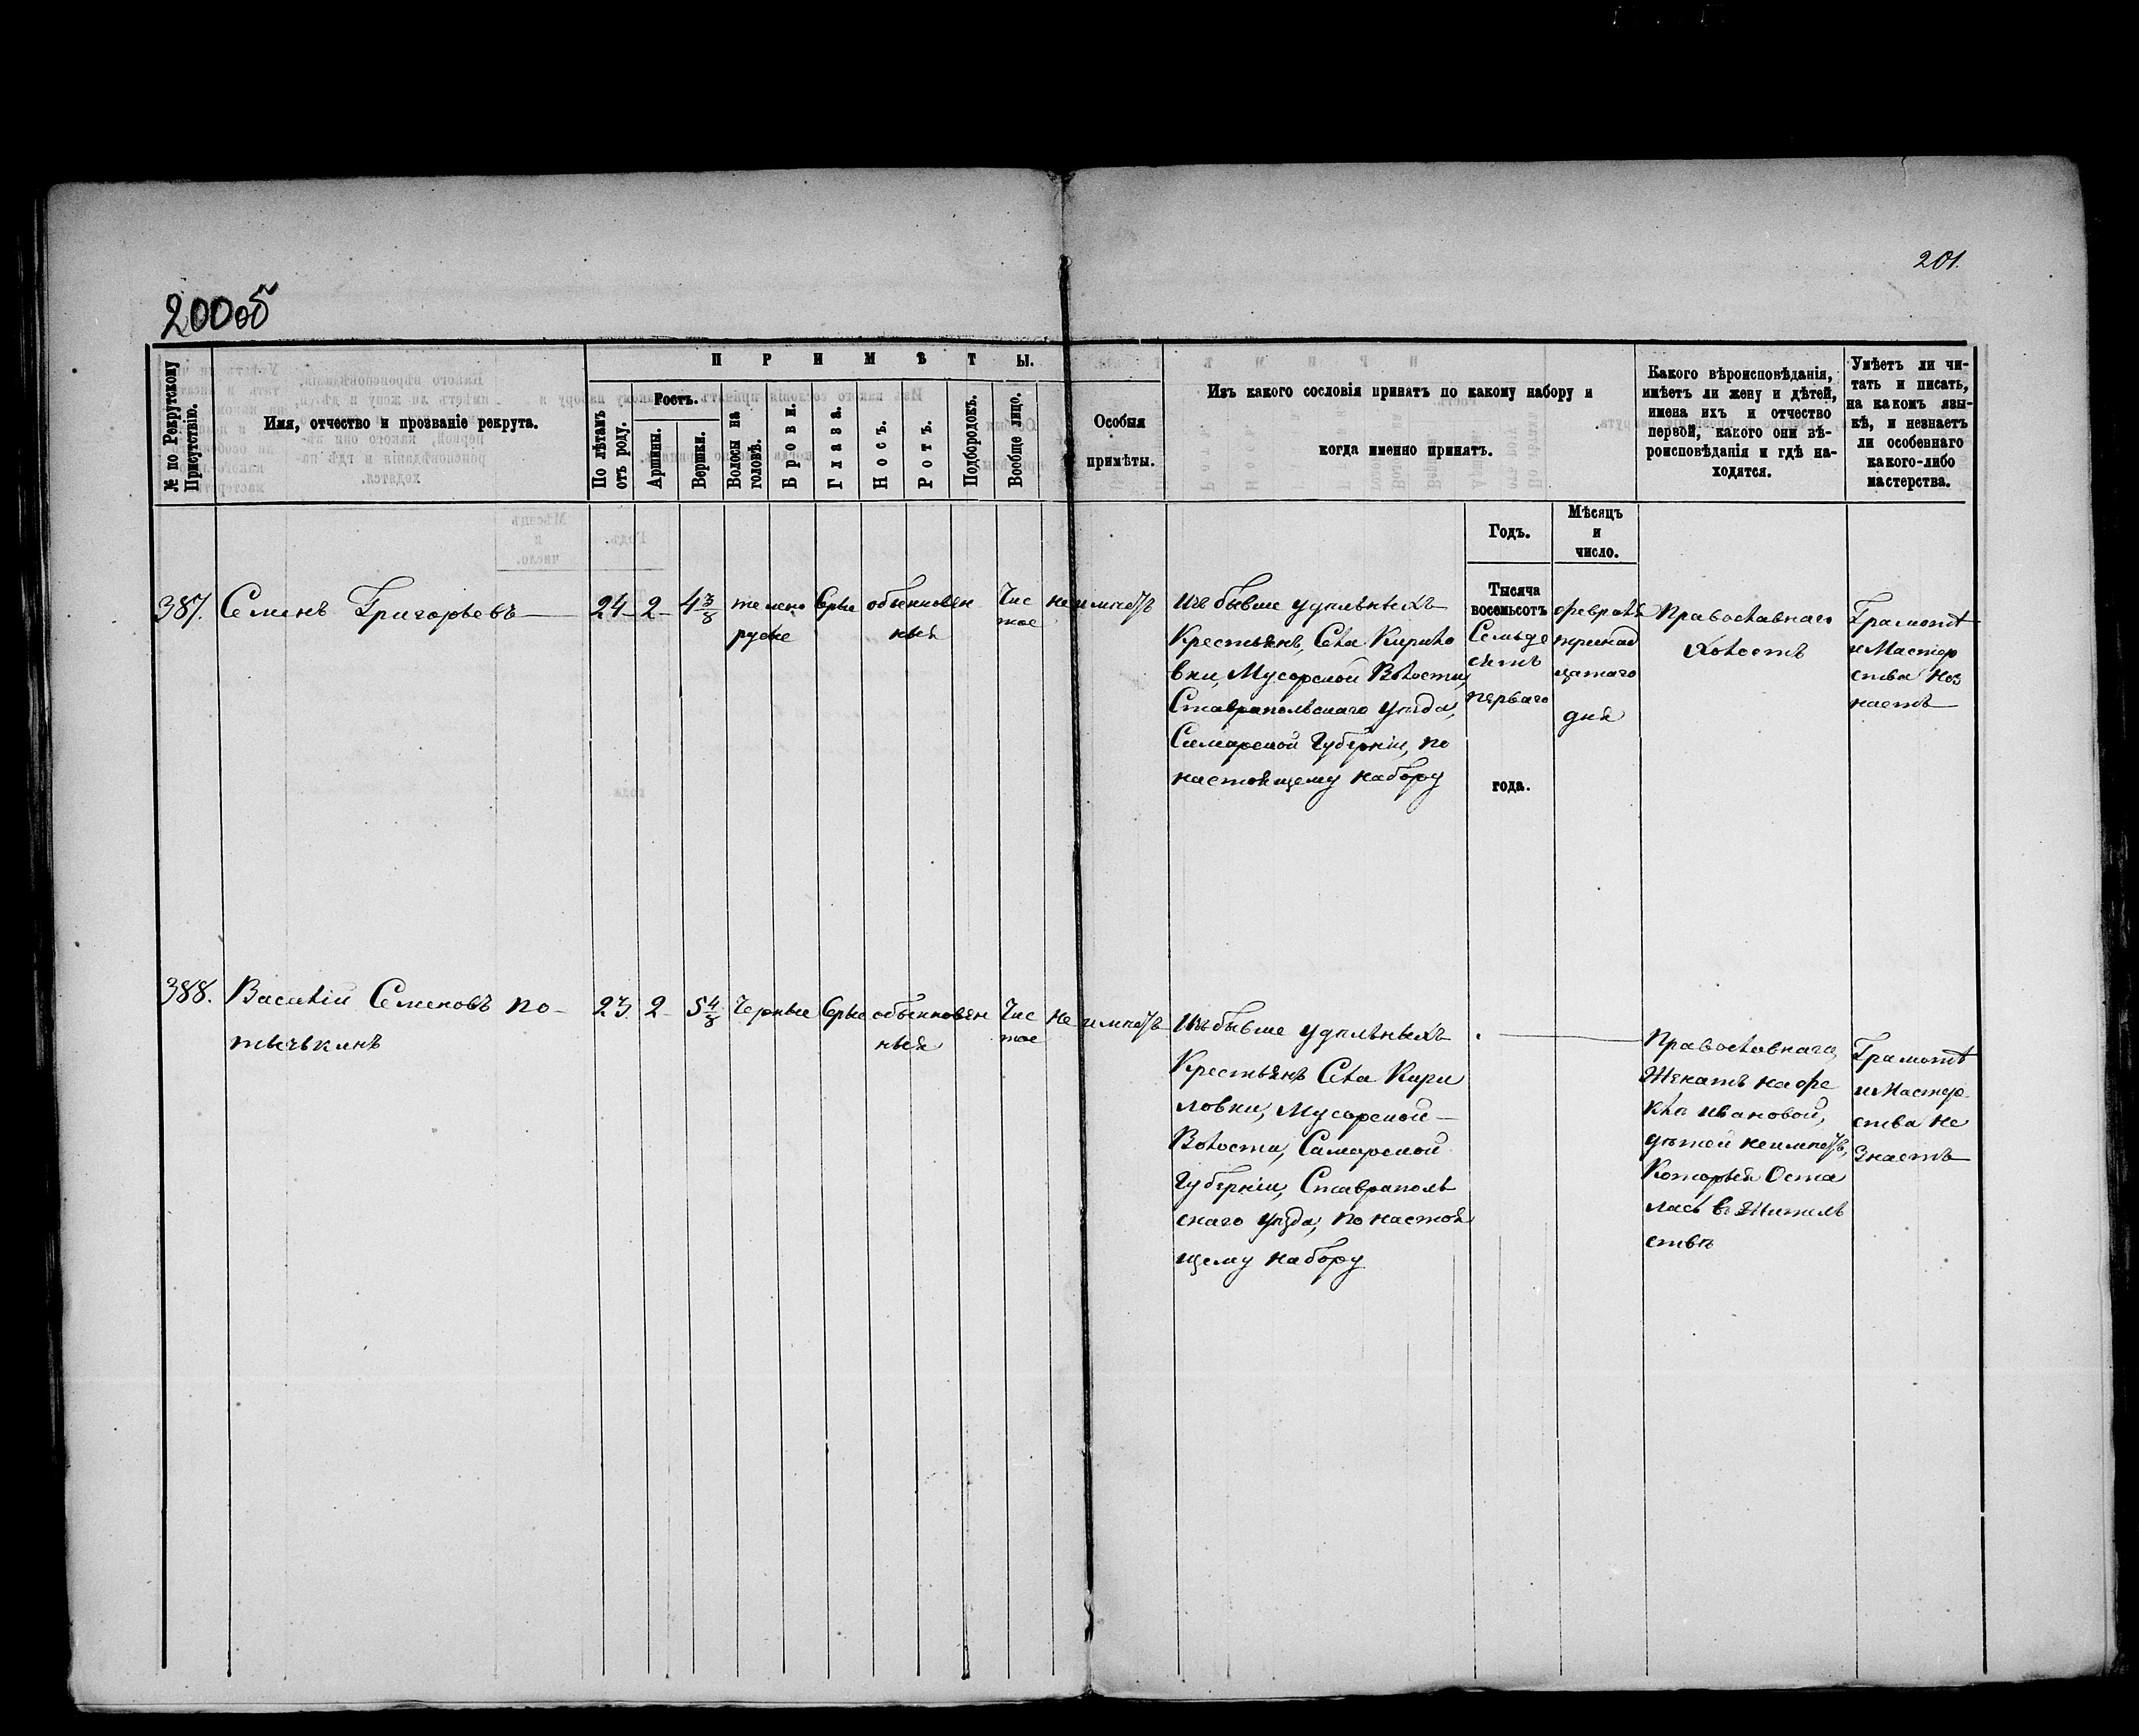 201.
200об
№ по Рекрутскому Присутствію.
Имя, отчество и прозваніе рекрута.
ПРИМѢТЫ.
По лѣтамъ отъ роду.
Ростъ.
Аршины.
Вершки.
Волосы на головѣ.
Брови.
Глаза.
Носъ.
Ротъ.
Подбородокъ.
Вообще лицо.
Особыя
примѣты.
Изъ какого сословія принятъ по какому набору и
когда именно принятъ.
Какого вѣроисповѣданія,
имѣетъ ли жену и дѣтей,
имена ихъ и отчество
первой, какого они вѣ-
роисповѣданія и гдѣ на-
ходятся.
Умѣетъ ли чи-
тать и писать,
на какомъ язы-
кѣ, и незнаетъ
ли особеннаго
какого-либо
мастерства.
Годъ.
Мѣсяцъ
и
число.
387. Семенъ Григорьевъ
24 2 4 3/8
темено
русые
Серые
обыкновен
ныя
Чис
тое
не имеетъ
Изъ бывше удѣльныхъ
Крестьянъ, Села Кирило
вки, Мусорской Волости,
Ставрапольскаго уѣзда,
Самарской Губерніи, по
настоящему набору
Тысяча
восемьсотъ
Семьде
сятъ
перваго
года.
февраля
тринад
цатаго
дня
Православнаго
Холостъ
Грамотѣ
и Мастер
ства нез
наетъ
388. Василій Семеновъ По-
тычькинъ
23 2 5 4/8
Черные
Серые
обыкновен
ныя
Чис
тое
не имѣетъ
Изъ бывше удѣльныхъ
Крестьянъ, Села Кири
ловки, Мусорской
Волости, Самарской
Губерніи, Ставраполь
скаго уѣзда, по настоя
щему набору
Православнаго,
Женатъ на Фе
клѣ Ивановой,
дѣтей неимѣетъ,
Которыя Оста
лась въ Жител
ствѣ
Грамотѣ
и Мастер
ства не
Знаетъ